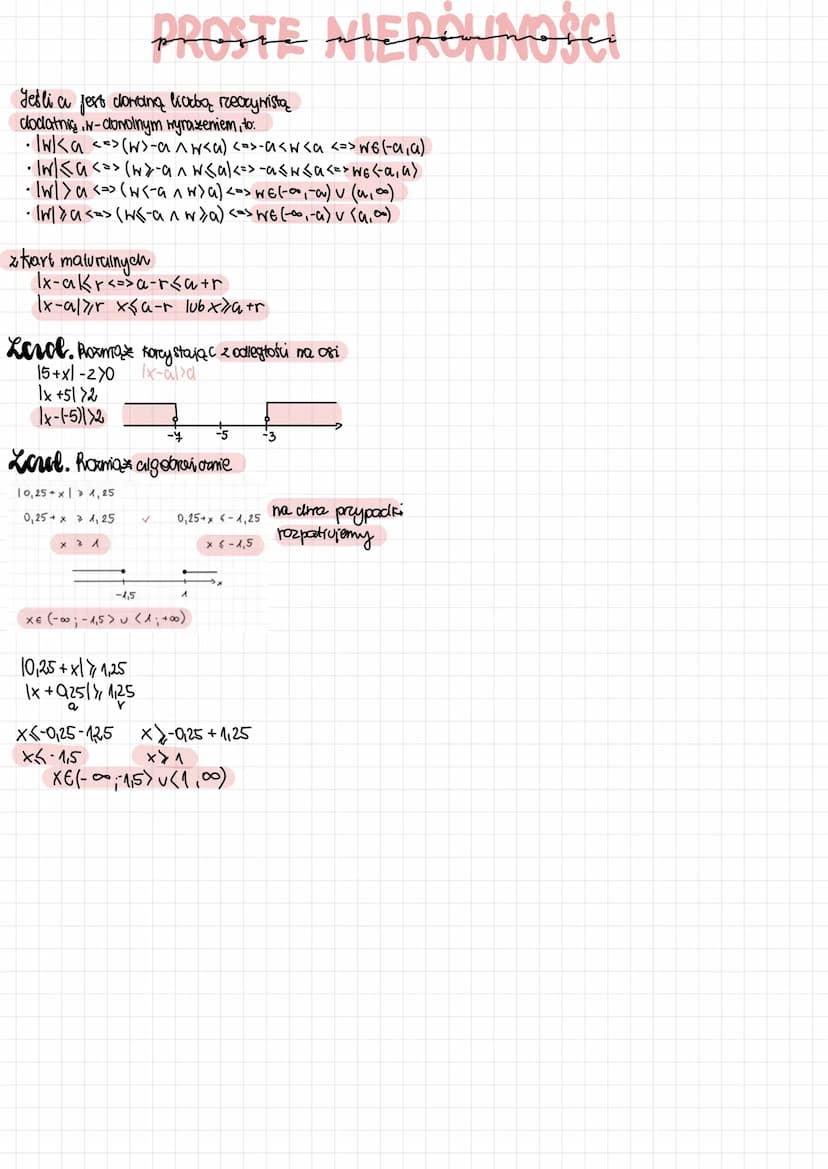 PROSTE NIERÓWNOŚCI
proste nierówności
Jeśli a jest dowolną liczbą rzeczywistą
dodatnią, w-dowolnym wyrażeniem, to:
· |w|<a <=> (w>-a ∧ w<a) <=> -a<w<a <=> w∈(-a,a)
· |w|⩽a <=> (w⩾-a ∧ w⩽a) <=> -a⩽w⩽a <=> w∈<-a,a>
· |w|>a <=> (w<-a ∧ w>a) <=> w∈(-∞,-a) ∪ (a,∞)
· |w|⩾a <=> (w⩽-a ∧ w⩾a) <=> w∈(-∞,-a> ∪ <a,∞)
z kart maturalnych
|x-a|⩽r <=> a-r⩽a+r
|x-a|⩾r x⩽a-r lub x⩾a+r
Zad. Rozwiąż korzystając z odległości na osi
|5+x| -2>0 |x-a|>a
|x+5|>2
|x-(-5)|>2
-7 -5 -3
Zad. Rozwiąż algebraicznie
|0,25+x| ⩾ 1,25
0,25+x ⩾ 1,25 ∨ 0,25+x ⩽ -1,25 na dwa przypadki
x ⩾ 1 x ⩽ -1,5 rozpatrujemy
-1,5 1 x
x∈ (-∞; -1,5> ∪ <1; +∞)
|0,25+x|⩾1,25
|x+0,25|⩾1,25
a r
x⩽-0,25-1,25 x⩾-0,25+1,25
x⩽-1,5 x⩾1
x∈(-∞;-1,5> ∪ <1,∞)